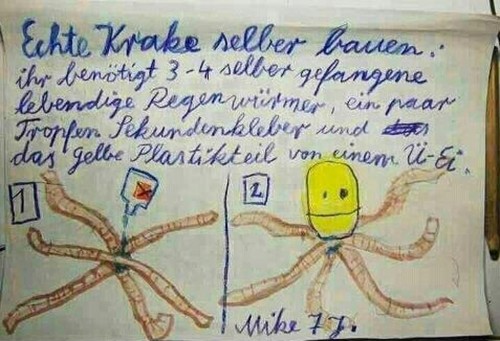 Echte Krake selber bauen:
ihr benötigt 3-4 selber gefangene
lebendige Regenwürmer, ein paar
Tropfen Sekundenkleber und
das gelbe Plastikteil von einem Ü-Ei.
1
2
Mike 7 J.